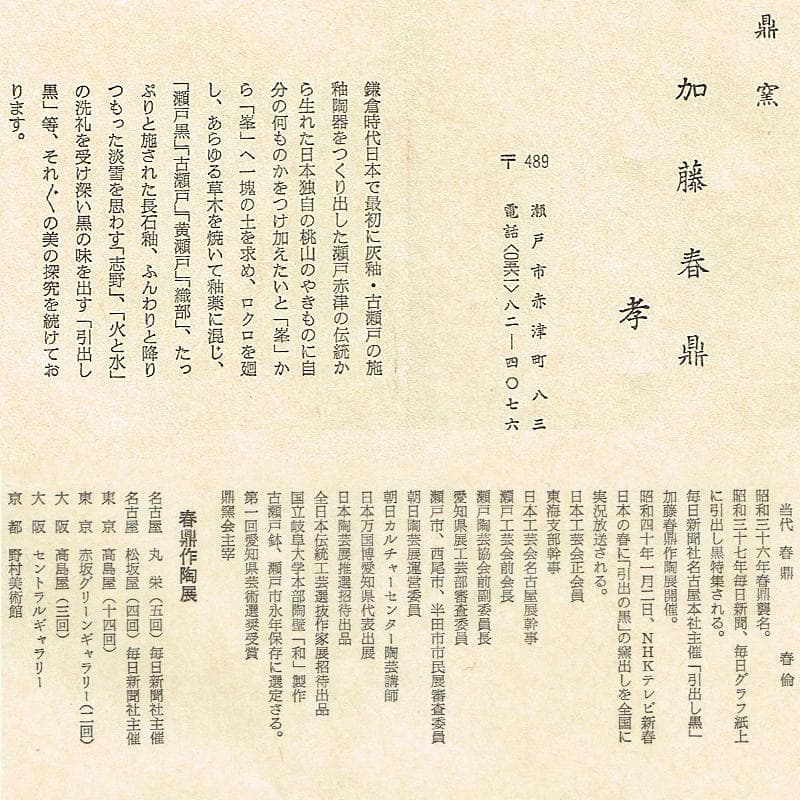 鼎窯
加藤春鼎
孝
〒489
瀬戸市赤津町八三
電話〈〇五六一〉八二―四〇七六
鎌倉時代日本で最初に灰釉・古瀬戸の施
釉陶器をつくり出した瀬戸赤津の伝統か
ら生れた日本独自の桃山のやきものに自
分の何ものかをつけ加えたいと「峯」か
ら「峯」へ一塊の土を求め、ロクロを廻
し、あらゆる草木を焼いて釉薬に混じ、
「瀬戸黒」「古瀬戸」「黄瀬戸」「織部」、たっ
ぷりと施された長石釉、ふんわりと降り
つもった淡雪を思わす「志野」、「火と水」
の洗礼を受け深い黒の味を出す「引出し
黒」等、それ〱の美の探究を続けてお
ります。
当代 春鼎 春倫
昭和三十六年春鼎襲名。
昭和三十七年毎日新聞、毎日グラフ紙上
に引出し黒特集される。
毎日新聞社名古屋本社主催「引出し黒」
加藤春鼎作陶展開催。
昭和四十年一月二日、NHKテレビ新春
日本の春に「引出の黒」の窯出しを全国に
実況放送される。
日本工芸会正会員
東海支部幹事
日本工芸会名古屋展幹事
瀬戸工芸会前会長
瀬戸陶芸協会前副委員長
愛知県展工芸部審査委員
瀬戸市、西尾市、半田市市民展審査委員
朝日陶芸展運営委員
朝日カルチャーセンター陶芸講師
日本万国博愛知県代表出展
日本陶芸展推選招待出品
全日本伝統工芸選抜作家展招待出品
国立岐阜大学本部陶壁「和」製作
古瀬戸鉢、瀬戸市永年保存に選定さる。
第一回愛知県芸術選奨受賞
鼎窯会主宰
春鼎作陶展
名古屋 丸栄(五回)毎日新聞社主催
名古屋 松坂屋(四回)毎日新聞社主催
東京 高島屋(十四回)
東京 赤坂グリーンギャラリー(二回)
大阪 高島屋(三回)
大阪 セントラルギャラリー
京都 野村美術館